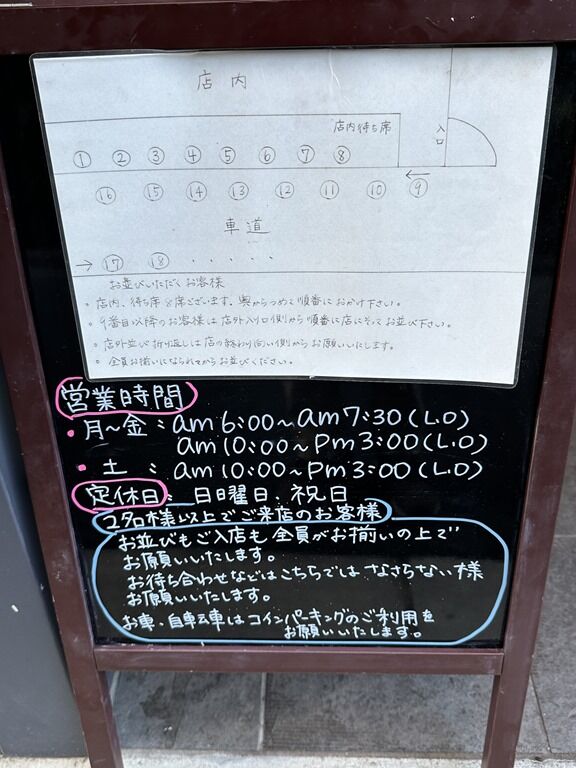 店内
店内待ち席
入口
① ② ③ ④ ⑤ ⑥ ⑦ ⑧
⑯ ⑮ ⑭ ⑬ ⑫ ⑪ ⑩ ← ⑨
車道
→ ⑰ ⑱ ・・・・・
お並びいただくお客様
・店内、待ち席8席ございます。奥からつめて順番におかけ下さい。
・9番目以降のお客様は店外入り口側から順番に店にそってお並び下さい。
・店外並び折り返しは店の終わり向い側からお願いいたします。
・全員お揃いになられてからお並びください。
営業時間
・月〜金:am6:00〜am7:30(L.O)
am10:00〜Pm3:00(L.O)
・土:am10:00〜Pm3:00(L.O)
定休日:日曜日・祝日
2名様以上でご来店のお客様
お並びもご入店も全員がお揃いの上で
お願いいたします。
お待ち合わせなどはこちらではなさらない様
お願いいたします。
お車・自転車はコインパーキングのご利用を
お願いいたします。